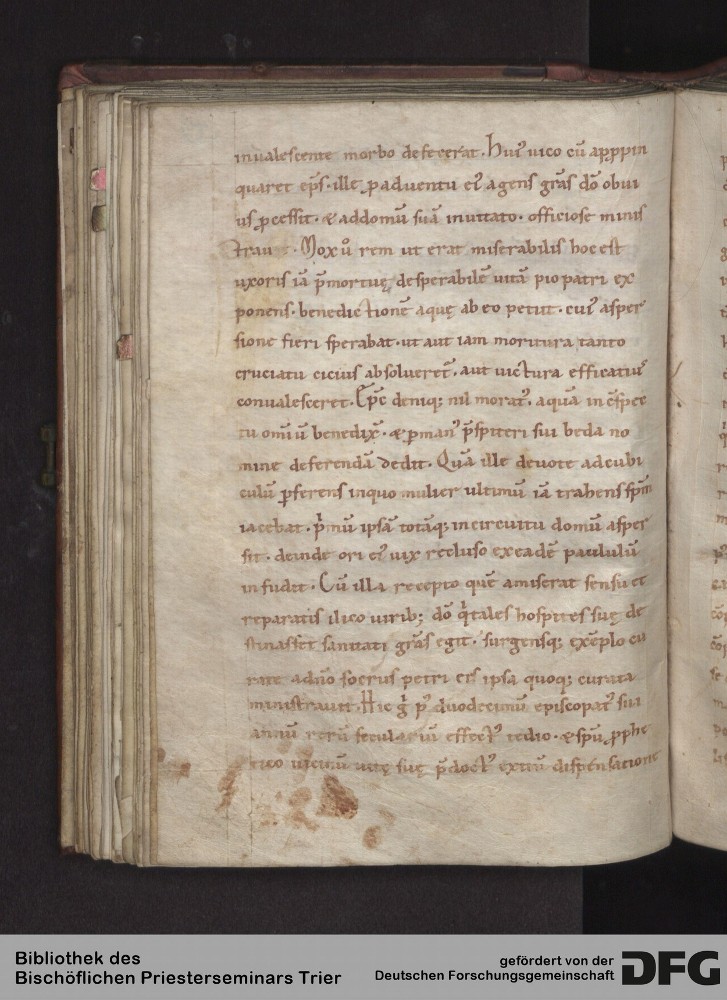 inualescente morbo deseruerat. Hui' uico cū apppin
quaret ep̄s. ille p aduentu ei' agens grās dō obui
us pcessit. & addomū suā inuitato. officiose minis
trauit. Mox ū rem ut erat miserabilis hoc est
uxoris iā p̄mortuę, desperabilē uitā pio patri ex
ponens. benedictionē aquę ab eo petiit. cui' asper
sione fieri sperabat. ut aut iam moritura tanto
cruciatu cicius absolueret̄. aut uictura efficatiu'
conualesceret. Ep̄c deniq; nil morat'. aquā in c̄spec
tu omīū benedix̄. & p man' p̄spiteri sui beda no
mine deferendā dedit. Quā ille deuote ad cubi
culū pferens inquo mulier ultimū iā trahens sp̄m
iacebat. p'mū ipsā totāq; incircuitu domū asper
sit. deinde ori ei' uix recluso exeadē paululū
infudit. Cū illa recepto quē amiserat sensu et
reparatis ilico uirib; dō q'tales hospites suę de
stinasset sanitati grās egit. surgensq; exēplo cu
rate adn̄o socrus petri eis ipsa quoq; curata
ministrauit. Hic g' p' duodecimū episcopat' sui
annū rerū seculariū effect' tedio. & sp̄u pphe
tico uicinū uitę suę p̄doct' exitū dispensatione
Bibliothek des
Bischöflichen Priesterseminars Trier
gefördert von der
Deutschen Forschungsgemeinschaft
DFG